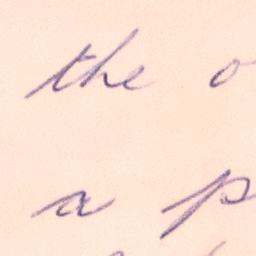 the o
a p